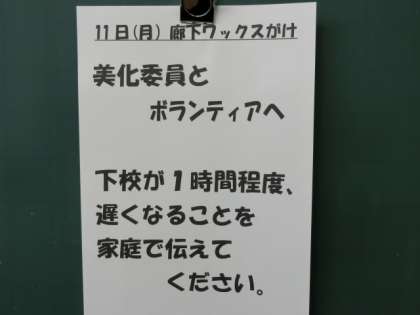 11日(月) 廊下ワックスがけ
美化委員と
ボランティアへ
下校が1時間程度、
遅くなることを
家庭で伝えて
ください。